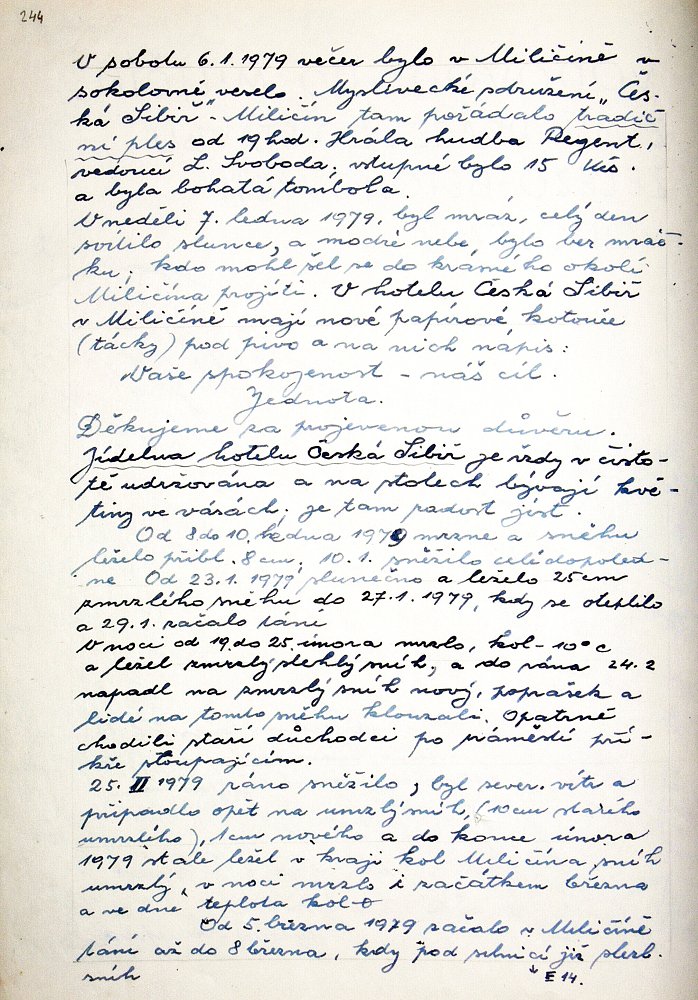 244
V sobotu 6.1.1979 večer bylo v Miličíně v
sokolovně veselo. Myslivecké sdružení „Čes-
ká Sibiř" - Miličín tam pořádalo tradič
ní ples od 19 hod. Hrála hudba Regent,
vedoucí L. Svoboda, vstupné bylo 15 Kčs.
a byla bohatá tombola.
V neděli 7. ledna 1979, byl mráz, celý den
svítilo slunce, a modré nebe, bylo bez mráč-
ku, kdo mohl šel se do krásného okolí
Miličína projíti. V hotelu Česká Sibiř
v Miličíně mají nové papírové kotouče
(tácky) pod pivo a na nich nápis:
Vaše spokojenost - náš cíl.
Jednota.
Děkujeme za projevenou důvěru.
Jídelna hotelu Česká Sibiř je vždy v čisto-
tě udržována a na stolech bývají kvě-
tiny ve vázách, je tam radost jíst.
Od 8 do 10. ledna 1979 mrzne a sněhu
leželo přibl. 8 cm, 10.1. sněžilo celé dopoled-
ne Od 23.1.1979 slunečno a leželo 25 cm
zmrzlého sněhu do 27.1.1979, kdy se oteplilo
a 29.1 začalo táni
V noci od 19. do 25. února mrzlo, kol - 10° c
a ležel zmrzlý slehlý sníh, a do rána 24.2
napadl na zmrzlý sníh nový, poprašek a
lidé na tomto sněhu klouzali. Opatrně
chodili staří důchodci po náměstí pří-
kře stoupajícím.
25. II 1979 ráno sněžilo, byl sever. vítr a
připadlo opět na umrzlý sníh, (10 cm starého
umrzlého), 1 cm nového a do konce února
1979 stále ležel v kraji kol Miličína sníh
umrzlý, v noci mrzlo i začátkem března
a ve dne teplota kol 0
Od 5. března 1979 začalo v Miličíně
táni až do 8 března, kdy pod silnicí již slezl.
sníh
14.